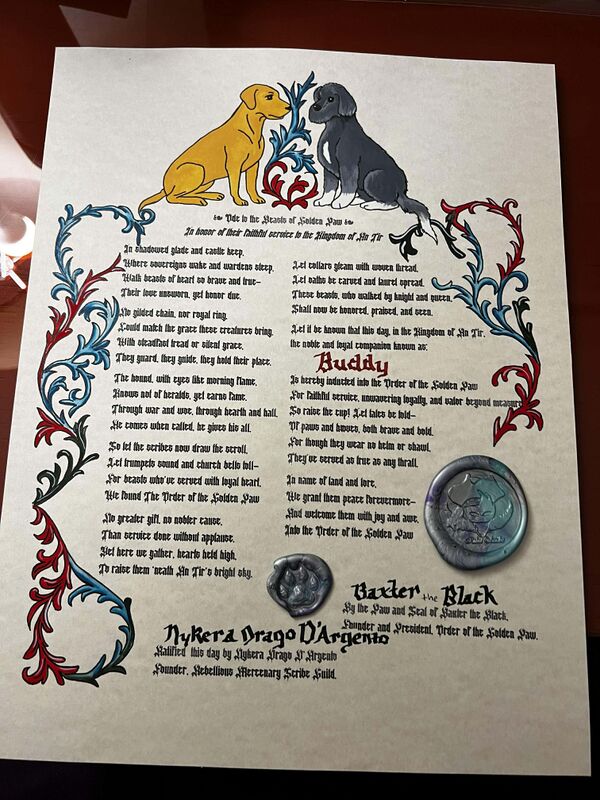 Ode to the Beasts of Golden Paw
In honor of their faithful service to the Kingdom of An Tir
In shadowed glade and castle keep,
Where sovereigns wake and wardens sleep,
Walk beasts of heart so brave and true—
Their love unsworn, yet honor due.
No gilded chain, nor royal ring,
Could match the grace these creatures bring.
With steadfast tread or silent grace,
They guard, they guide, they hold their place.
The hound, with eyes like morning flame,
Knows not of heralds, yet earns fame.
Through war and woe, through hearth and hall,
He comes when called, he gives his all.
So let the scribes now draw the scroll,
Let trumpets sound and church bells toll—
For beasts who've served with loyal heart,
We Found The Order of the Golden Paw
No greater gift, no nobler cause,
Than service done without applause.
Yet here we gather, hearts held high,
To raise them 'neath An Tir's bright sky.
Let collars gleam with woven thread,
Let oaths be carved and laurel spread.
These beasts, who walked by knight and queen,
Shall now be honored, praised, and seen.
Let it be known that this day, in the Kingdom of An Tir,
the noble and loyal companion known as:
Buddy
Is hereby inducted into the Order of the Golden Paw
For faithful service, unwavering loyalty, and valor beyond measure
So raise the cup! Let tales be told—
Of paws and hooves, both brave and bold.
For though they wear no helm or shawl,
They've served as true as any thrall.
In name of land and lore,
We grant them peace forevermore—
And welcome them with joy and awe,
Into the Order of the Golden Paw
Baxter the Black
By the Paw and Seal of Baxter the Black,
Founder and President, Order of the Golden Paw.
Nykera Drago D'Argento
Ratified this day by Nykera Drago D'Argento
Founder, Rebellious Mercenary Scribe Guild.